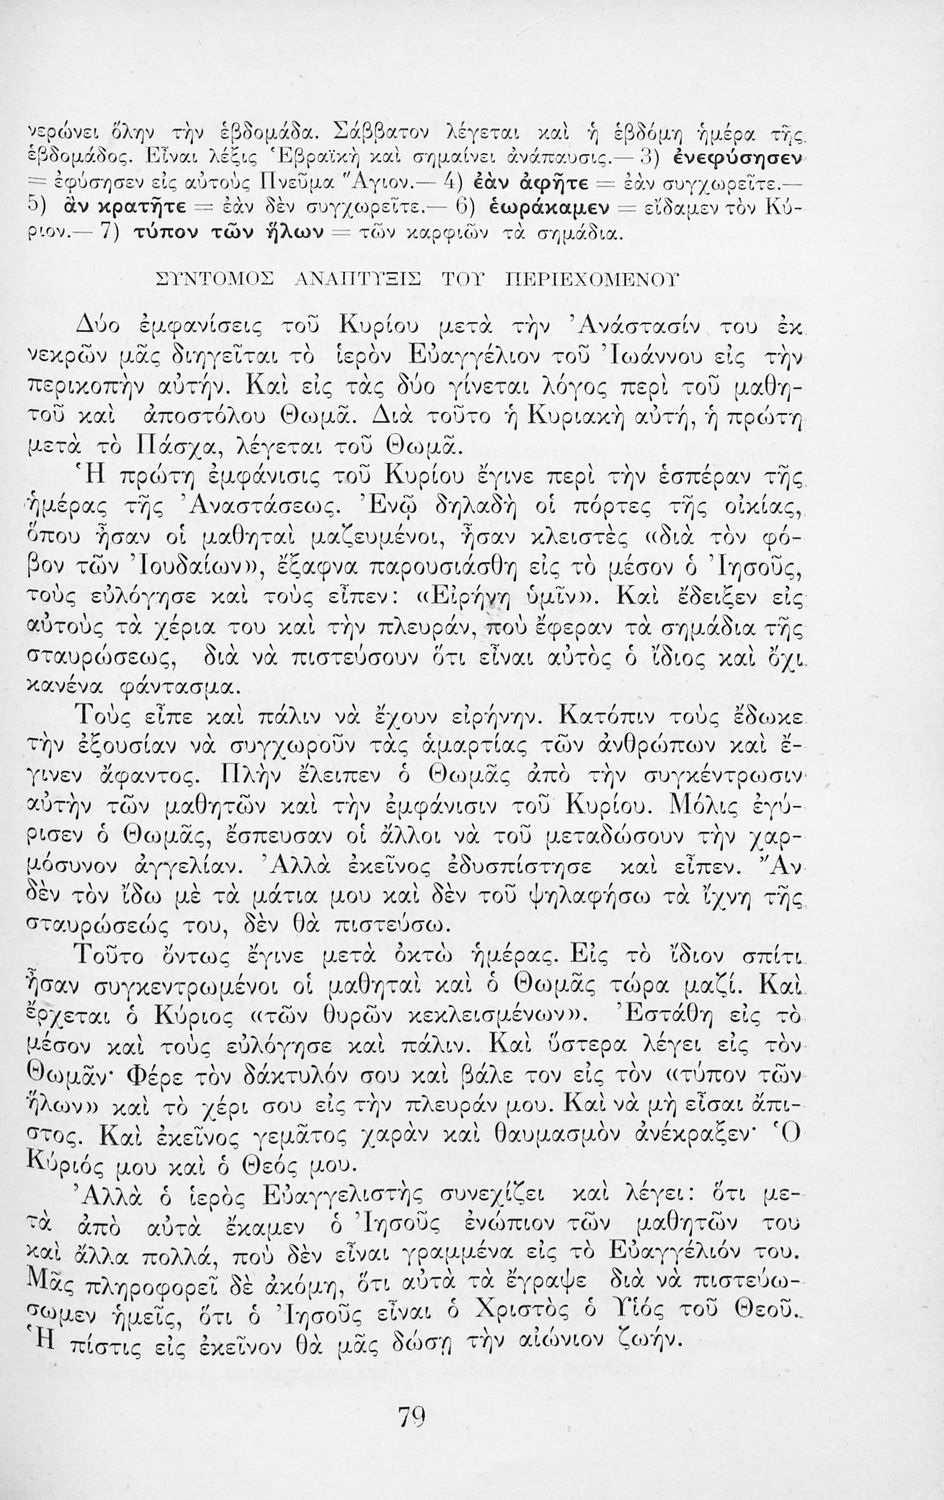 νερώνει ὅλην τὴν ἑβδομάδα. Σάββατον λέγεται καὶ ἡ ἑβδόμη ἡμέρα τῆς
ἑβδομάδος. Εἶναι λέξις Ἑβραϊκὴ καὶ σημαίνει ἀνάπαυσις.— 3) ἐνεφύσησεν
= ἐφύσησεν εἰς αὐτοὺς Πνεῦμα Ἅγιον.— 4) ἐὰν ἀφῆτε = ἐὰν συγχωρεῖτε.—
5) ἂν κρατῆτε = ἐὰν δὲν συγχωρεῖτε.— 6) ἑωράκαμεν = εἴδαμεν τὸν Κύ-
ριον.— 7) τύπον τῶν ἥλων = τῶν καρφιῶν τὰ σημάδια.
ΣΥΝΤΟΜΟΣ ΑΝΑΠΤΥΞΙΣ ΤΟΥ ΠΕΡΙΕΧΟΜΕΝΟΥ
Δύο ἐμφανίσεις τοῦ Κυρίου μετὰ τὴν Ἀνάστασίν του ἐκ
νεκρῶν μᾶς διηγεῖται τὸ ἱερὸν Εὐαγγέλιον τοῦ Ἰωάννου εἰς τὴν
περικοπὴν αὐτήν. Καὶ εἰς τὰς δύο γίνεται λόγος περὶ τοῦ μαθη-
τοῦ καὶ ἀποστόλου Θωμᾶ. Διὰ τοῦτο ἡ Κυριακὴ αὐτή, ἡ πρώτη
μετὰ τὸ Πάσχα, λέγεται τοῦ Θωμᾶ.
Ἡ πρώτη ἐμφάνισις τοῦ Κυρίου ἔγινε περὶ τὴν ἑσπέραν τῆς
ἡμέρας τῆς Ἀναστάσεως. Ἐνῷ δηλαδὴ οἱ πόρτες τῆς οἰκίας,
ὅπου ἦσαν οἱ μαθηταὶ μαζευμένοι, ἦσαν κλειστὲς «διὰ τὸν φό-
βον τῶν Ἰουδαίων», ἔξαφνα παρουσιάσθη εἰς τὸ μέσον ὁ Ἰησοῦς,
τοὺς εὐλόγησε καὶ τοὺς εἶπεν: «Εἰρήνη ὑμῖν». Καὶ ἔδειξεν εἰς
αὐτοὺς τὰ χέρια του καὶ τὴν πλευράν, ποὺ ἔφεραν τὰ σημάδια τῆς
σταυρώσεως, διὰ νὰ πιστεύσουν ὅτι εἶναι αὐτὸς ὁ ἴδιος καὶ ὄχι
κανένα φάντασμα.
Τοὺς εἶπε καὶ πάλιν νὰ ἔχουν εἰρήνην. Κατόπιν τοὺς ἔδωκε
τὴν ἐξουσίαν νὰ συγχωροῦν τὰς ἁμαρτίας τῶν ἀνθρώπων καὶ ἔ-
γινεν ἄφαντος. Πλὴν ἔλειπεν ὁ Θωμᾶς ἀπὸ τὴν συγκέντρωσιν
αὐτὴν τῶν μαθητῶν καὶ τὴν ἐμφάνισιν τοῦ Κυρίου. Μόλις ἐγύ-
ρισεν ὁ Θωμᾶς, ἔσπευσαν οἱ ἄλλοι νὰ τοῦ μεταδώσουν τὴν χαρ-
μόσυνον ἀγγελίαν. Ἀλλὰ ἐκεῖνος ἐδυσπίστησε καὶ εἶπεν. Ἂν
δὲν τὸν ἴδω μὲ τὰ μάτια μου καὶ δὲν τοῦ ψηλαφήσω τὰ ἴχνη τῆς
σταυρώσεώς του, δὲν θὰ πιστεύσω.
Τοῦτο ὄντως ἔγινε μετὰ ὀκτὼ ἡμέρας. Εἰς τὸ ἴδιον σπίτι
ἦσαν συγκεντρωμένοι οἱ μαθηταὶ καὶ ὁ Θωμᾶς τώρα μαζί. Καὶ
ἔρχεται ὁ Κύριος «τῶν θυρῶν κεκλεισμένων». Ἐστάθη εἰς τὸ
μέσον καὶ τοὺς εὐλόγησε καὶ πάλιν. Καὶ ὕστερα λέγει εἰς τὸν
Θωμᾶν· Φέρε τὸν δάκτυλόν σου καὶ βάλε τον εἰς τὸν «τύπον τῶν
ἥλων» καὶ τὸ χέρι σου εἰς τὴν πλευράν μου. Καὶ νὰ μὴ εἶσαι ἄπι-
στος. Καὶ ἐκεῖνος γεμᾶτος χαρὰν καὶ θαυμασμὸν ἀνέκραξεν· Ὁ
Κύριός μου καὶ ὁ Θεός μου.
Ἀλλὰ ὁ ἱερὸς Εὐαγγελιστὴς συνεχίζει καὶ λέγει: ὅτι με-
τὰ ἀπὸ αὐτὰ ἔκαμεν ὁ Ἰησοῦς ἐνώπιον τῶν μαθητῶν του
καὶ ἄλλα πολλά, ποὺ δὲν εἶναι γραμμένα εἰς τὸ Εὐαγγέλιόν του.
Μᾶς πληροφορεῖ δὲ ἀκόμη, ὅτι αὐτὰ τὰ ἔγραψε διὰ νὰ πιστεύω-
σωμεν ἡμεῖς, ὅτι ὁ Ἰησοῦς εἶναι ὁ Χριστὸς ὁ Υἱός τοῦ Θεοῦ.
Ἡ πίστις εἰς ἐκεῖνον θὰ μᾶς δώσῃ τὴν αἰώνιον ζωήν.
79